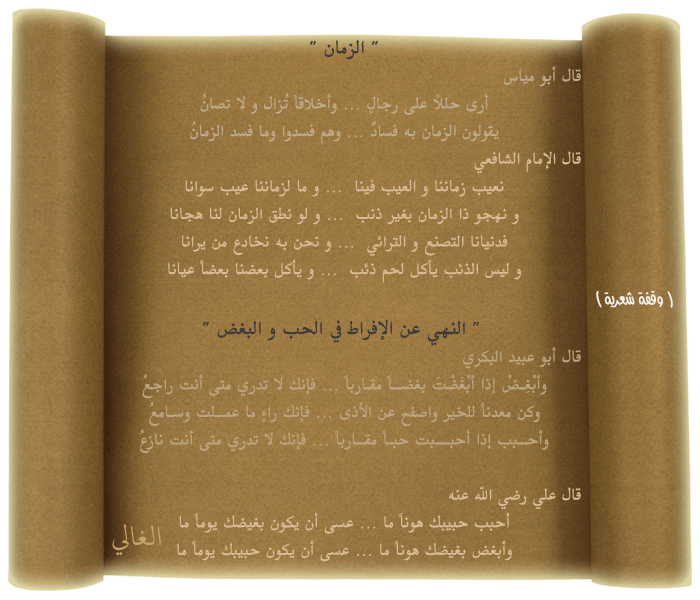 " الزمان "
قال أبو مياس
أرى حللاً على رجالٍ ... وأخلاقاً تُزال و لا تصانُ
يقولون الزمان به فسادٌ ... وهم فسدوا وما فسد الزمانُ
قال الإمام الشافعي
نعيب زماننا و العيب فينا ... و ما لزماننا عيب سوانا
و نهجو ذا الزمان بغير ذئب ... و لو نطق الزمان لنا هجانا
فدنيانا التصنع و الترائي ... و نحن به نخادع من يرانا
و ليس الذئب يأكل لحم ذئب ... و يأكل بعضنا بعضاً عيانا
( وقفة شعرية )
" النهي عن الإفراط في الحب و البغض "
قال أبو عبيد البكري
وأبْغِـضْ إذا أبْغَضْتَ بغضــاً مقـارباً ... فإنك لا تدري متى أنت راجعُ
وكن معدناً للخير واصفح عن الأذى ... فإنك راءٍ ما عمــلت وسـامعُ
وأحــبب إذا أحبـــبت حبـاً مقــارباً ... فإنك لا تدري متى أنت نازعُ
قال علي رضي الله عنه
أحبب حبيبك هوناً ما ... عسى أن يكون بغيضك يوماً ما
وأبغض بغيضك هوناً ما ... عسى أن يكون حبيبك يوماً ما
الغالي